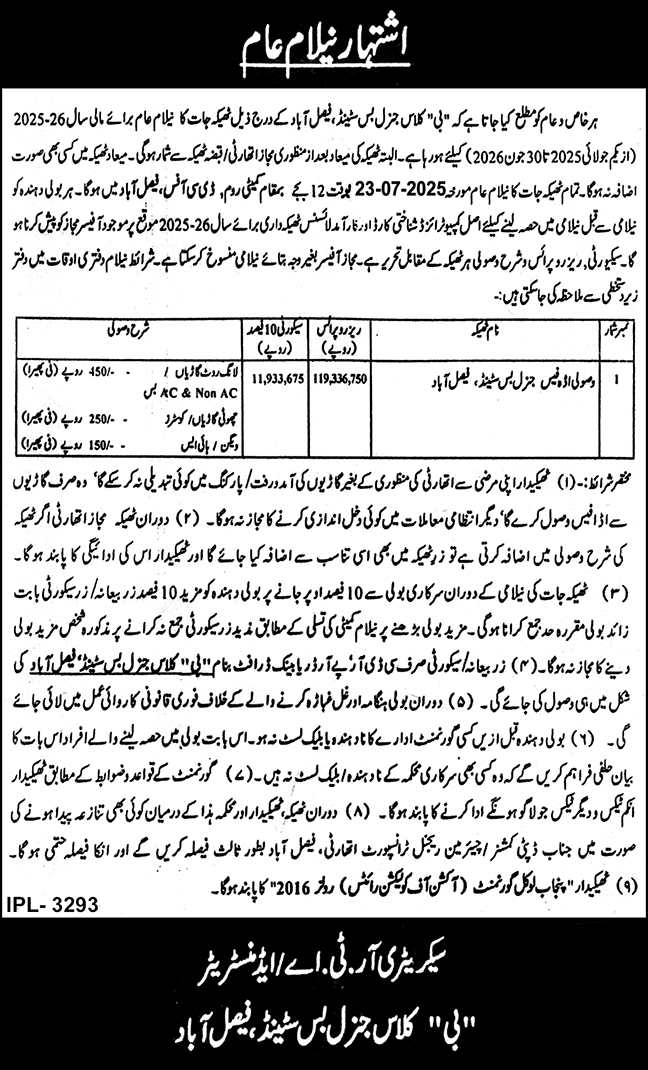 اشتہار نیلام عام
ہر خاص و عام کو مطلع کیا جاتا ہے کہ "بی" کلاس جنرل بس سٹینڈ، فیصل آباد کے درج ذیل ٹھیکہ جات کا نیلام عام برائے مالی سال 26-2025
(از یکم جولائی 2025 تا 30 جون 2026) کیلئے ہو رہا ہے۔ البتہ ٹھیکہ کی میعاد بعد از منظوری مجاز اتھارٹی/ قبضہ ٹھیکہ سے شمار ہوگی۔ میعاد ٹھیکہ میں کسی بھی صورت
اضافہ نہ ہوگا۔ تمام ٹھیکہ جات کا نیلام عام مورخہ 23-07-2025 بوقت 12 بجے بمقام کمیٹی روم، ڈی سی آفس، فیصل آباد میں ہوگا۔ ہر بولی دہندہ کو
نیلامی سے قبل نیلامی میں حصہ لینے کیلئے اصل کمپیوٹرائزڈ شناختی کارڈ اور کارآمد لائسنس ٹھیکیداری برائے سال 26-2025 موقع پر موجود آفیسر مجاز کو پیش کرنا ہو
گا۔ سیکورٹی، ریزرو پرائس و شرح وصولی ہر ٹھیکہ کے مقابل تحریر ہے۔ مجاز آفیسر بغیر وجہ بتائے نیلامی منسوخ کر سکتا ہے۔ شرائط نیلام دفتری اوقات میں دفتر
زیر دستخطی سے ملاحظہ کی جا سکتی ہیں:-
نمبر شمار نام ٹھیکہ ریزرو پرائس (روپے) سیکورٹی 10 فیصد (روپے) شرح وصولی
1 وصولی اڈہ فیس جنرل بس سٹینڈ، فیصل آباد 119,336,750 11,933,675 لانگ روٹ گاڑیاں / - -/450 روپے (فی پھیرا)
AC & Non AC بس
چھوٹی گاڑیاں/ کوسٹرز - -/250 روپے (فی پھیرا)
ویگن / ہائی ایس - -/150 روپے (فی پھیرا)
مختصر شرائط:- (۱) ٹھیکیدار اپنی مرضی سے اتھارٹی کی منظوری کے بغیر گاڑیوں کی آمد و رفت/ پارکنگ میں کوئی تبدیلی نہ کر سکے گا' وہ صرف گاڑیوں
سے اڈا فیس وصول کرے گا' دیگر انتظامی معاملات میں کوئی دخل اندازی کرنے کا مجاز نہ ہوگا۔ (۲) دوران ٹھیکہ مجاز اتھارٹی اگر ٹھیکہ
کی شرح وصولی میں اضافہ کرتی ہے تو زر ٹھیکہ میں بھی اسی تناسب سے اضافہ کیا جائے گا اور ٹھیکیدار اس کی ادائیگی کا پابند ہوگا۔
(۳) ٹھیکہ جات کی نیلامی کے دوران سرکاری بولی سے 10 فیصد اوپر جانے پر بولی دہندہ کو مزید 10 فیصد زر بیعانہ/ زر سیکورٹی بابت
زائد بولی مقررہ حد جمع کرانا ہوگی۔ مزید بولی بڑھنے پر نیلام کمیٹی کی تسلی کے مطابق مذید زر سیکورٹی جمع نہ کرانے پر مذکورہ شخص مزید بولی
دینے کا مجاز نہ ہوگا۔ (۴) زر بیعانہ/ سیکورٹی صرف سی ڈی آر' پے آرڈر یا بینک ڈرافٹ بنام "بی" کلاس جنرل بس سٹینڈ' فیصل آباد کی
شکل میں ہی وصول کی جائے گی۔ (۵) دوران بولی ہنگامہ اور غل غپاڑہ کرنے والے کے خلاف فوری قانونی کاروائی عمل میں لائی جائے
گی۔ (۶) بولی دہندہ قبل ازیں کسی گورنمنٹ ادارے کا نادہندہ یا بلیک لسٹ نہ ہو۔ اس بابت بولی میں حصہ لینے والے افراد اس بات کا
بیان حلفی فراہم کریں گے کہ وہ کسی بھی سرکاری محکمہ کے نادہندہ / بلیک لسٹ نہ ہیں۔ (۷) گورنمنٹ کے قواعد و ضوابط کے مطابق ٹھیکیدار
انکم ٹیکس و دیگر ٹیکس جو لاگو ہونگے ادا کرنے کا پابند ہوگا۔ (۸) دوران ٹھیکہ، ٹھیکیدار اور محکمہ ہذا کے درمیان کوئی بھی تنازعہ پیدا ہونے کی
صورت میں جناب ڈپٹی کمشنر / چیئرمین ریجنل ٹرانسپورٹ اتھارٹی، فیصل آباد بطور ثالث فیصلہ کریں گے اور انکا فیصلہ حتمی ہو گا۔
(۹) ٹھیکیدار "پنجاب لوکل گورنمنٹ (آکشن آف کولیکشن رائٹس) رولز 2016" کا پابند ہوگا۔
IPL- 3293
سیکریٹری آر.ٹی.اے/ ایڈمنسٹریٹر
"بی" کلاس جنرل بس سٹینڈ، فیصل آباد